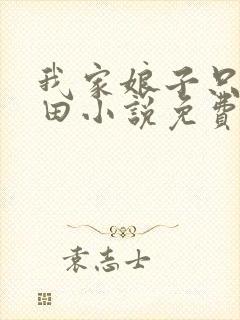 我家娘子只
田小說免費
袁志士